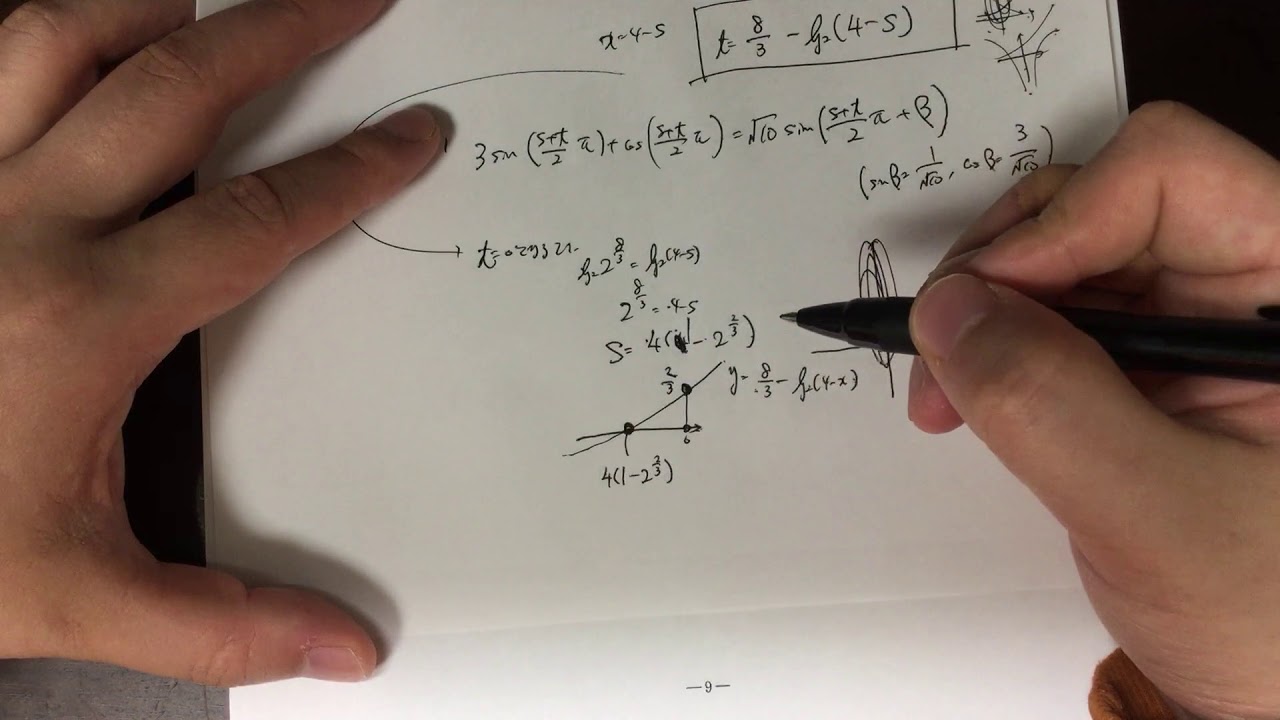 x=4-s
t=8/3-log₂(4-s)
3sin((s+t)/2 π)+cos((s+t)/2 π)=√10 sin((s+t)/2 π+β)
(sinβ=1/√10, cosβ=3/√10)
t=0とすると log₂2^(8/3)=log₂(4-s)
2^(8/3)=4-s
s=4(1-2^(2/3))
2/3
y=8/3-log₂(4-x)
4(1-2^(2/3))
—9—